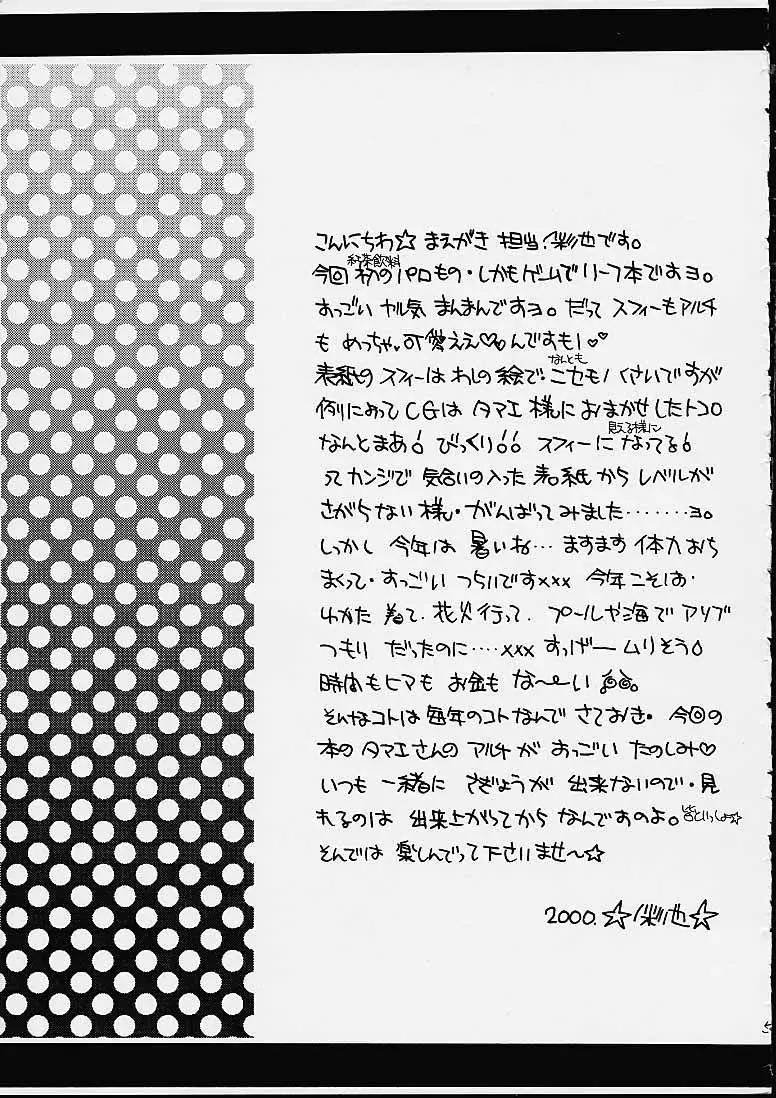 こんにちわ☆ まえがき 担当、彩池です。
紅茶飲料
今回 初の パロもの・しかもゲームで リーフ本ですヨ。
すっごい ヤル気 まんまんですヨ。だって スフィーもアルチ
も めっちゃ、可愛ええ♡もんですもん♥♥
なんとも
表紙の スフィーは わしの絵で・ニセモノくさいですが
例によって CGは タマエ 様に おまかせしたトコロ
見える様に
なんとまあ! びっくり!! スフィーに なってる!
ってカンジで 気合いの入った 表紙 から レベルが
さがらない 様・がんばってみました………ヨ。
しっかし 今年は 暑いね… ますます 体力 おち
まくって・すっごい つらいですxxx 今年こそは・
ゆかた 着て、花火行って、プールや海で アソブ
つもり だったのに‥‥xxx すっげー ムリそう
時間も ヒマも お金も な〜い 。
そんなコトは 毎年のコトなんで さておき・ 今回の
本の タマエさんの アルチが すっごい たのしみ♡
いつも 一緒に さぎょうが 出来ないので・見
れるのは 出来上がってから なんですのよ。皆といっしょ☆
そんでは 楽しんでって 下さいませ〜☆
2000. ☆彩池☆